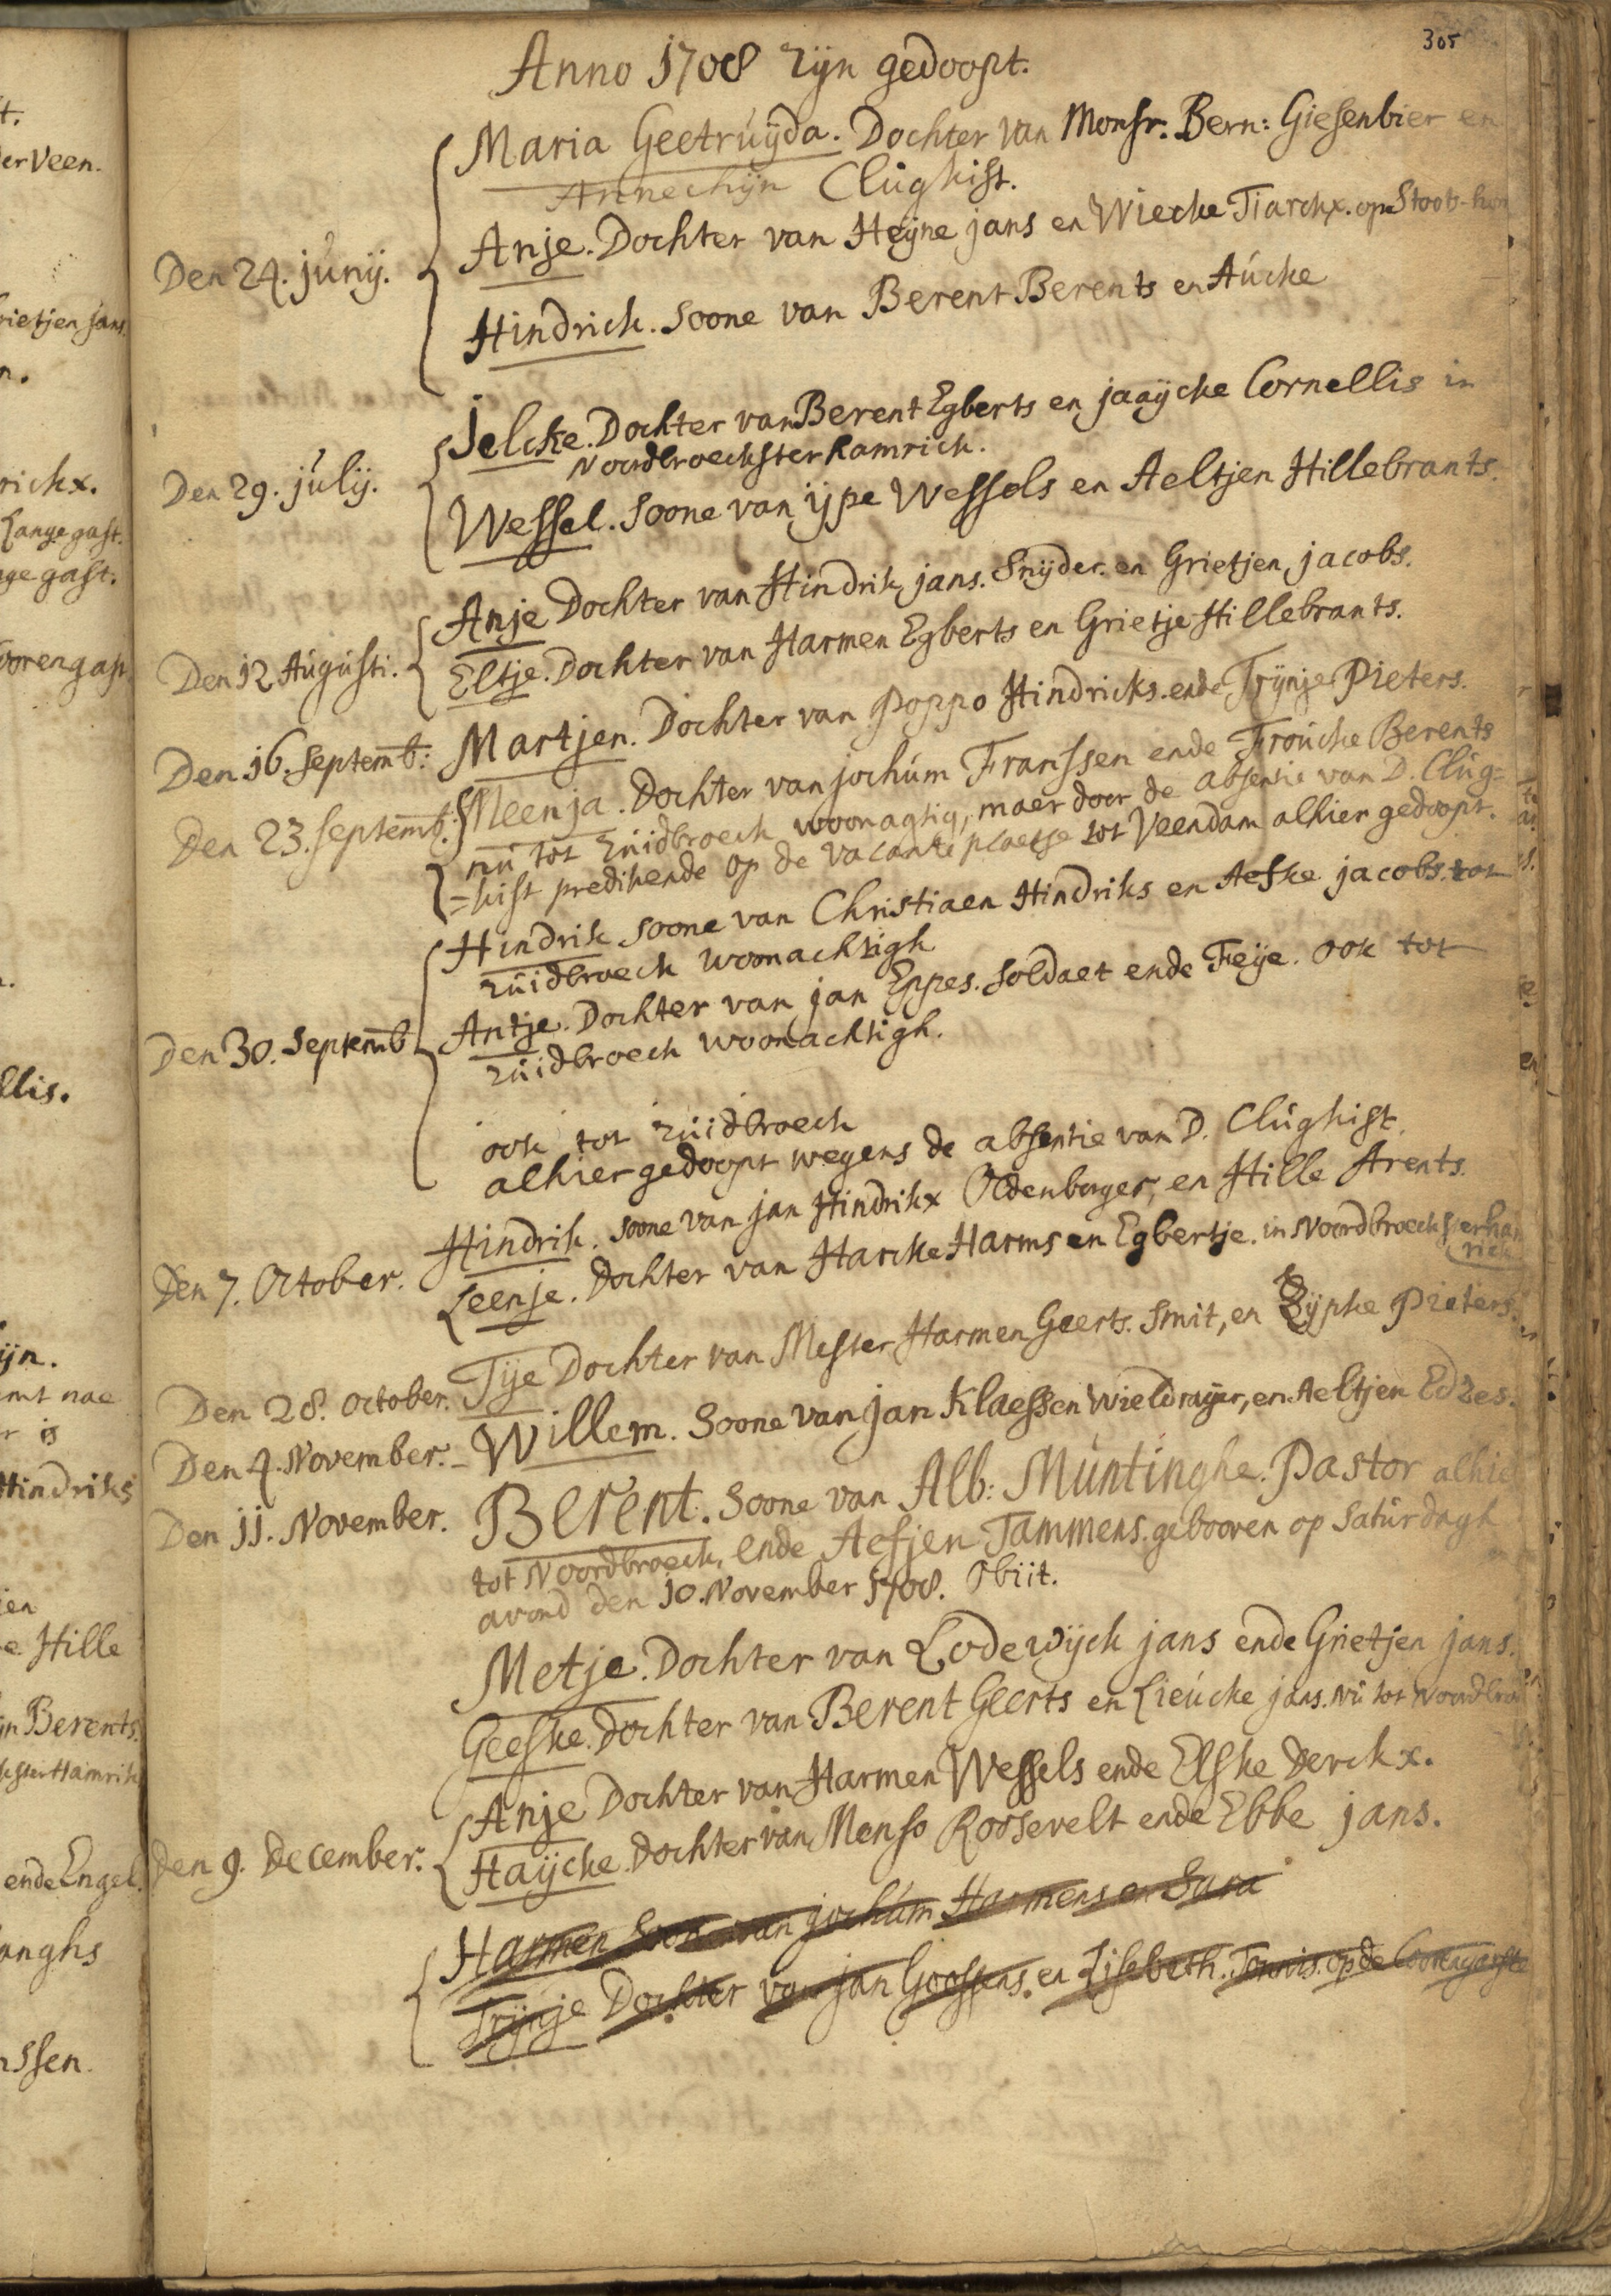 305
Anno 1708 zijn gedoopt.
Maria Geetruijda. Dochter van Monsr. Bern: Giesenbier en
Annechijn Clughist.
Anje. Dochter van Heijne jans en Wiecke Tiarckx. op Stoots-
Den 24. junij.
Hindrich. Soone van Berent Berents en Aucke
Jelcke. Dochter van Berent Egberts en jaaijcke Cornellis in
Noordbroeckster Hamrich.
Den 29. julij.
Wessel. Soone van ijpe Wessels en Aeltjen Hillebrants.
Anje Dochter van Hindrik jans. Snijder. en Grietjen jacobs.
Den 12 Augusti.
Eltje. Dochter van Harmen Egberts en Grietje Hillebrants.
Den 16. Septemb: Martjen. Dochter van Poppo Hindricks. ende Trijnje Pieters.
Den 23. Septemb: Meenja. Dochter van jochum Franssen ende Froucke Berents
nu tot Zuidbroeck woonagtig, maer door de absentie van D. Clug=
=hist predikende op de vacante plaetse tot Veendam alhier gedoopt.
Hindrik Soone van Christiaen Hindriks en Aefke jacobs. tot
Zuidbroeck woonachtigh
Den 30. Septemb
Antje. Dochter van jan Eppes. Soldaet ende Feije. ook tot
Zuidbroeck woonachtigh.
ook tot Zuidbroeck
alhier gedoopt wegens de absentie van D. Clughist.
Hindrik. soone van jan Hindrikx Oldenborger, en Hille Arents.
Den 7. October.
Leenje. Dochter van Harcke Harms en Egbertje. in Noordbroecksterham
rich
Den 28. October. Tije Dochter van Mester Harmen Geerts. Smit, en Zijpke Pieters.
Den 4. November. Willem. Soone van jan Klaessen Wieldraijer, en Aeltjen Edzes.
Den 11. November. Berent. Soone van Alb: Muntinghe. Pastor alhier
tot Noordbroeck, ende Aefjen Tammens. gebooren op Saturdagh
avond den 10. November 1708. Obiit.
Metje. Dochter van Lodewijck jans ende Grietjen jans.
Geeske. Dochter van Berent Geerts en Lieucke jans. nu tot Noordbroe
Anje Dochter van Harmen Wessels ende Elske Derckx.
Den 9. December.
Haijcke Dochter van Menso Roosevelt ende Ebbe jans.
Harmen Soone van jochum Harmens en Sara
Trijnje Dochter van jan Goossens. en Lisebeth. Tonnis. op de
t.
er Veen.
rietjen jans
n.
rickx.
Lange gast.
ge gast.
orengast
llis.
ijn.
mt nae
r is
Hindriks
ien
e Hille
jn Berents.
kster Hamrik
ende Engel.
anghs
nssen.